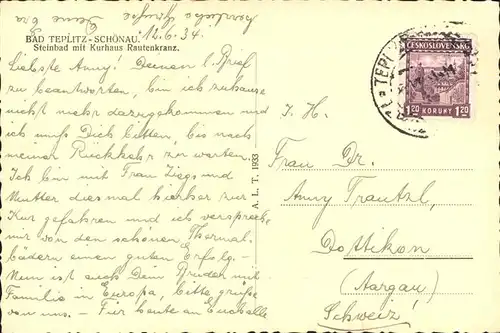 herzliche Grüße Deine Eva
BAD TEPLITZ-SCHÖNAU. 12.6.34.
Steinbad mit Kurhaus Rautenkranz.
Liebste Anny! Deinen l. Brief
zu beantworten, bin ich zuhause
nicht mehr dazugekommen und
ich muß Dich bitten, bis nach
meiner Rückkehr zu warten.
Ich bin mit Frau und
Mutter diesmal hierher zur
Kur gefahren und ich verspreche
mir von den schönen Thermal-
bädern einen guten Erfolg. -
Nun ist auch Dein Bruder mit
Familie in Europa, bitte grüße
von uns. - Für heute
A. L. T. 1933
TEPLITZ
ČESKOSLOVENSKO
1.20 KORUNY 1.20
I. H.
Frau Dr.
Anny Trautzl,
Dottikon
(Aargau)
Schweiz